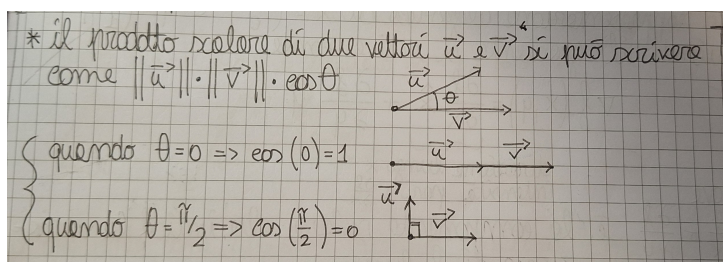 * il prodotto scalare di due vettori u⃗ e v⃗ si può scrivere
come ||u⃗||·||v⃗||·cosθ
u⃗
θ
v⃗
quando θ=0 => cos(0)=1
u⃗ v⃗
u⃗
v⃗
quando θ=π/2 => cos(π/2)=0